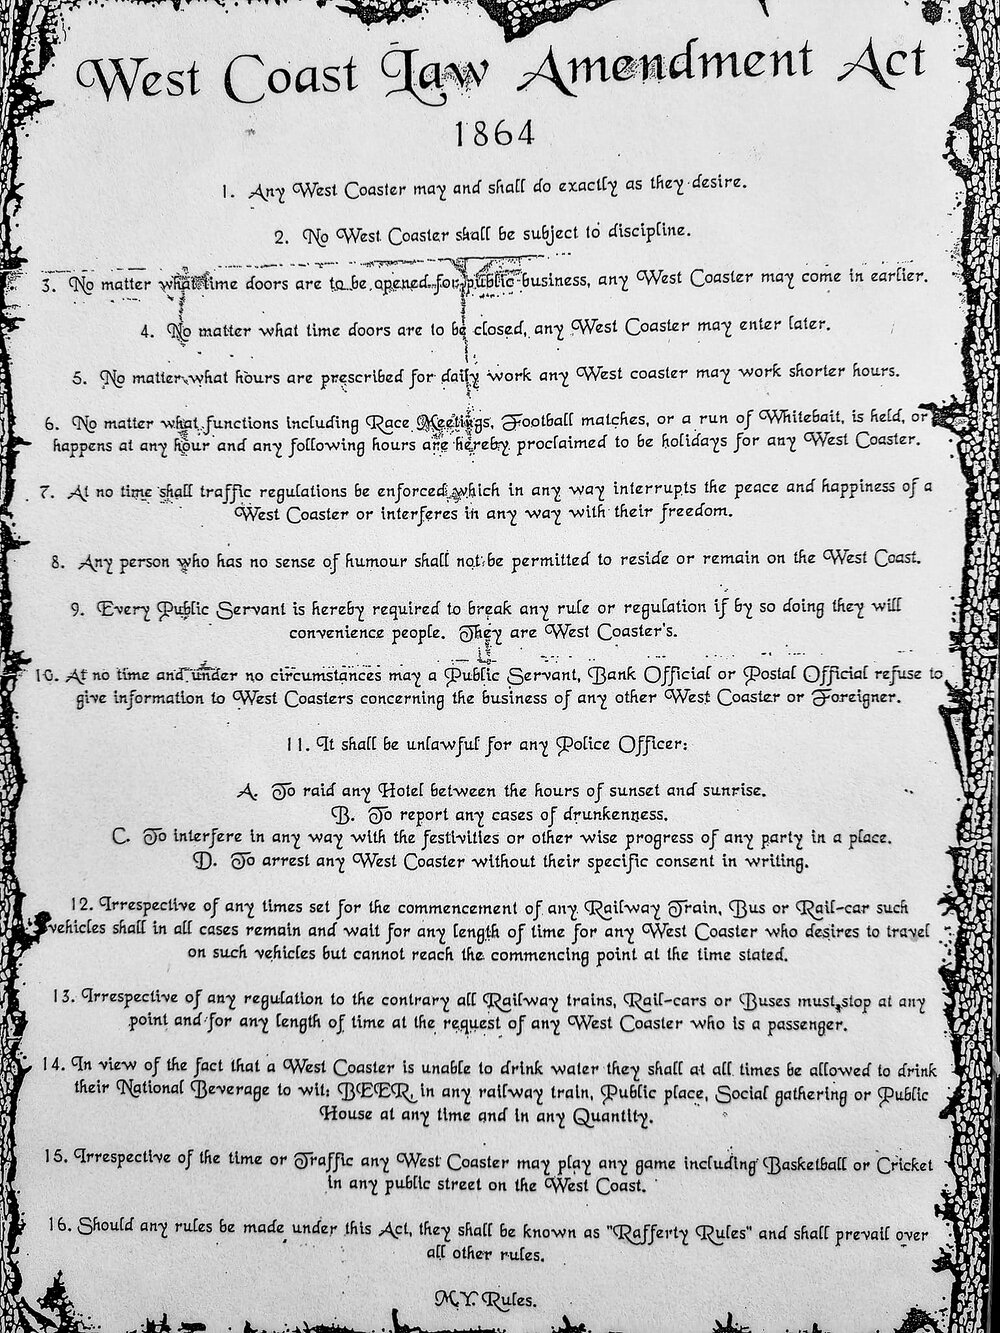 West Coast Law Amendment Act
1864
1. Any West Coaster may and shall do exactly as they desire.
2. No West Coaster shall be subject to discipline.
3. No matter what time doors are to be opened for public business, any West Coaster may come in earlier.
4. No matter what time doors are to be closed, any West Coaster may enter later.
5. No matter what hours are prescribed for daily work any West coaster may work shorter hours.
6. No matter what functions including Race Meetings, Football matches, or a run of Whitebait, is held, or
happens at any hour and any following hours are hereby proclaimed to be holidays for any West Coaster.
7. At no time shall traffic regulations be enforced which in any way interrupts the peace and happiness of a
West Coaster or interferes in any way with their freedom.
8. Any person who has no sense of humour shall not be permitted to reside or remain on the West Coast.
9. Every Public Servant is hereby required to break any rule or regulation if by so doing they will
convenience people. They are West Coaster's.
10. At no time and under no circumstances may a Public Servant, Bank Official or Postal Official refuse to
give information to West Coasters concerning the business of any other West Coaster or Foreigner.
11. It shall be unlawful for any Police Officer:
A. To raid any Hotel between the hours of sunset and sunrise.
B. To report any cases of drunkenness.
C. To interfere in any way with the festivities or other wise progress of any party in a place.
D. To arrest any West Coaster without their specific consent in writing.
12. Irrespective of any times set for the commencement of any Railway Train, Bus or Rail-car such
vehicles shall in all cases remain and wait for any length of time for any West Coaster who desires to travel
on such vehicles but cannot reach the commencing point at the time stated.
13. Irrespective of any regulation to the contrary all Railway trains, Rail-cars or Buses must stop at any
point and for any length of time at the request of any West Coaster who is a passenger.
14. In view of the fact that a West Coaster is unable to drink water they shall at all times be allowed to drink
their National Beverage to wit: BEER, in any railway train, Public place, Social gathering or Public
House at any time and in any Quantity.
15. Irrespective of the time or Traffic any West Coaster may play any game including Basketball or Cricket
in any public street on the West Coast.
16. Should any rules be made under this Act, they shall be known as "Rafferty Rules" and shall prevail over
all other rules.
M.Y. Rules.